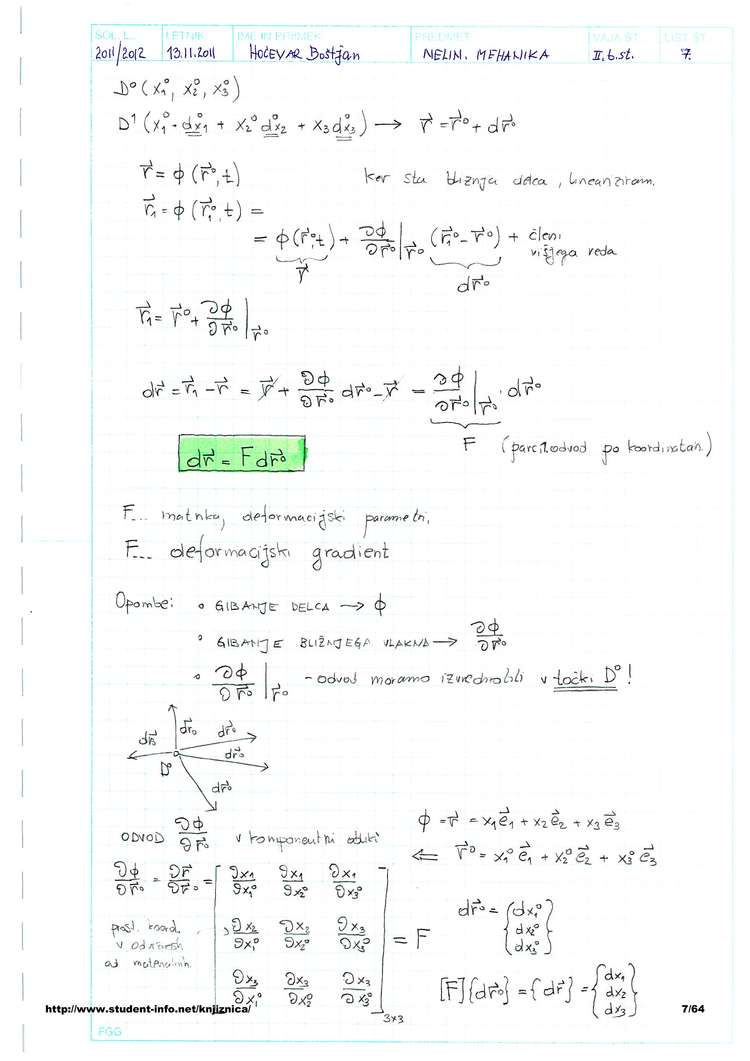 ŠOL. L. LETNIK IME IN PRIIMEK PREDMET VAJA ŠT. LIST ŠT.
2011/2012 13.11.2011 HOČEVAR Boštjan NELIN. MEHANIKA II. b. st. 7.
D⁰ (x₁⁰, x₂⁰, x₃⁰)
D¹ (x₁⁰ + dx₁⁰ + x₂⁰ dx₂⁰ + x₃ dx₃⁰) → r⃗ = r⃗⁰ + dr⃗⁰
r⃗ = ϕ (r⃗⁰, t) ker sta bližnja delca, lineariziram.
r⃗₁ = ϕ (r⃗₁⁰, t) =
= ϕ(r⃗⁰,t) + ∂ϕ/∂r⃗⁰ |r⃗⁰ (r⃗₁⁰ - r⃗⁰) + členi višjega reda
r⃗ dr⃗⁰
r⃗₁ = r⃗⁰ + ∂ϕ/∂r⃗⁰ |r⃗⁰
dr⃗ = r⃗₁ - r⃗ = r⃗ + ∂ϕ/∂r⃗⁰ dr⃗⁰ - r⃗ = ∂ϕ/∂r⃗⁰ |r⃗⁰ · dr⃗⁰
F (parc. odvod po koordinatah)
dr⃗ = F dr⃗⁰
F... matrika, deformacijski parametri,
F... deformacijski gradient
Opombe: • GIBANJE DELCA → ϕ
• GIBANJE BLIŽNJEGA VLAKNA → ∂ϕ/∂r⃗⁰
• ∂ϕ/∂r⃗⁰ |r⃗⁰ - odvod moramo izvrednotiti v točki D⁰!
dr⃗⁰ dr⃗⁰ dr⃗⁰
dr⃗⁰
D⁰
dr⃗⁰
ϕ = r⃗ = x₁e⃗₁ + x₂e⃗₂ + x₃e⃗₃
ODVOD ∂ϕ/∂r⃗⁰ v komponentni obliki
⇐ r⃗⁰ = x₁⁰e⃗₁ + x₂⁰e⃗₂ + x₃⁰e⃗₃
∂ϕ/∂r⃗⁰ = ∂r⃗/∂r⃗⁰ = [ ∂x₁/∂x₁⁰ ∂x₁/∂x₂⁰ ∂x₁/∂x₃⁰
prost. koord. v odvisnosti od materialnih
∂x₂/∂x₁⁰ ∂x₂/∂x₂⁰ ∂x₃/∂x₃⁰ = F
dr⃗⁰ = {dx₁⁰ dx₂⁰ dx₃⁰}
∂x₃/∂x₁⁰ ∂x₃/∂x₂⁰ ∂x₃/∂x₃⁰ ]3×3
[F]{dr⃗⁰} = {dr⃗} = {dx₁ dx₂ dx₃}
http://www.student-info.net/knjiznica/ 7/64
FGG